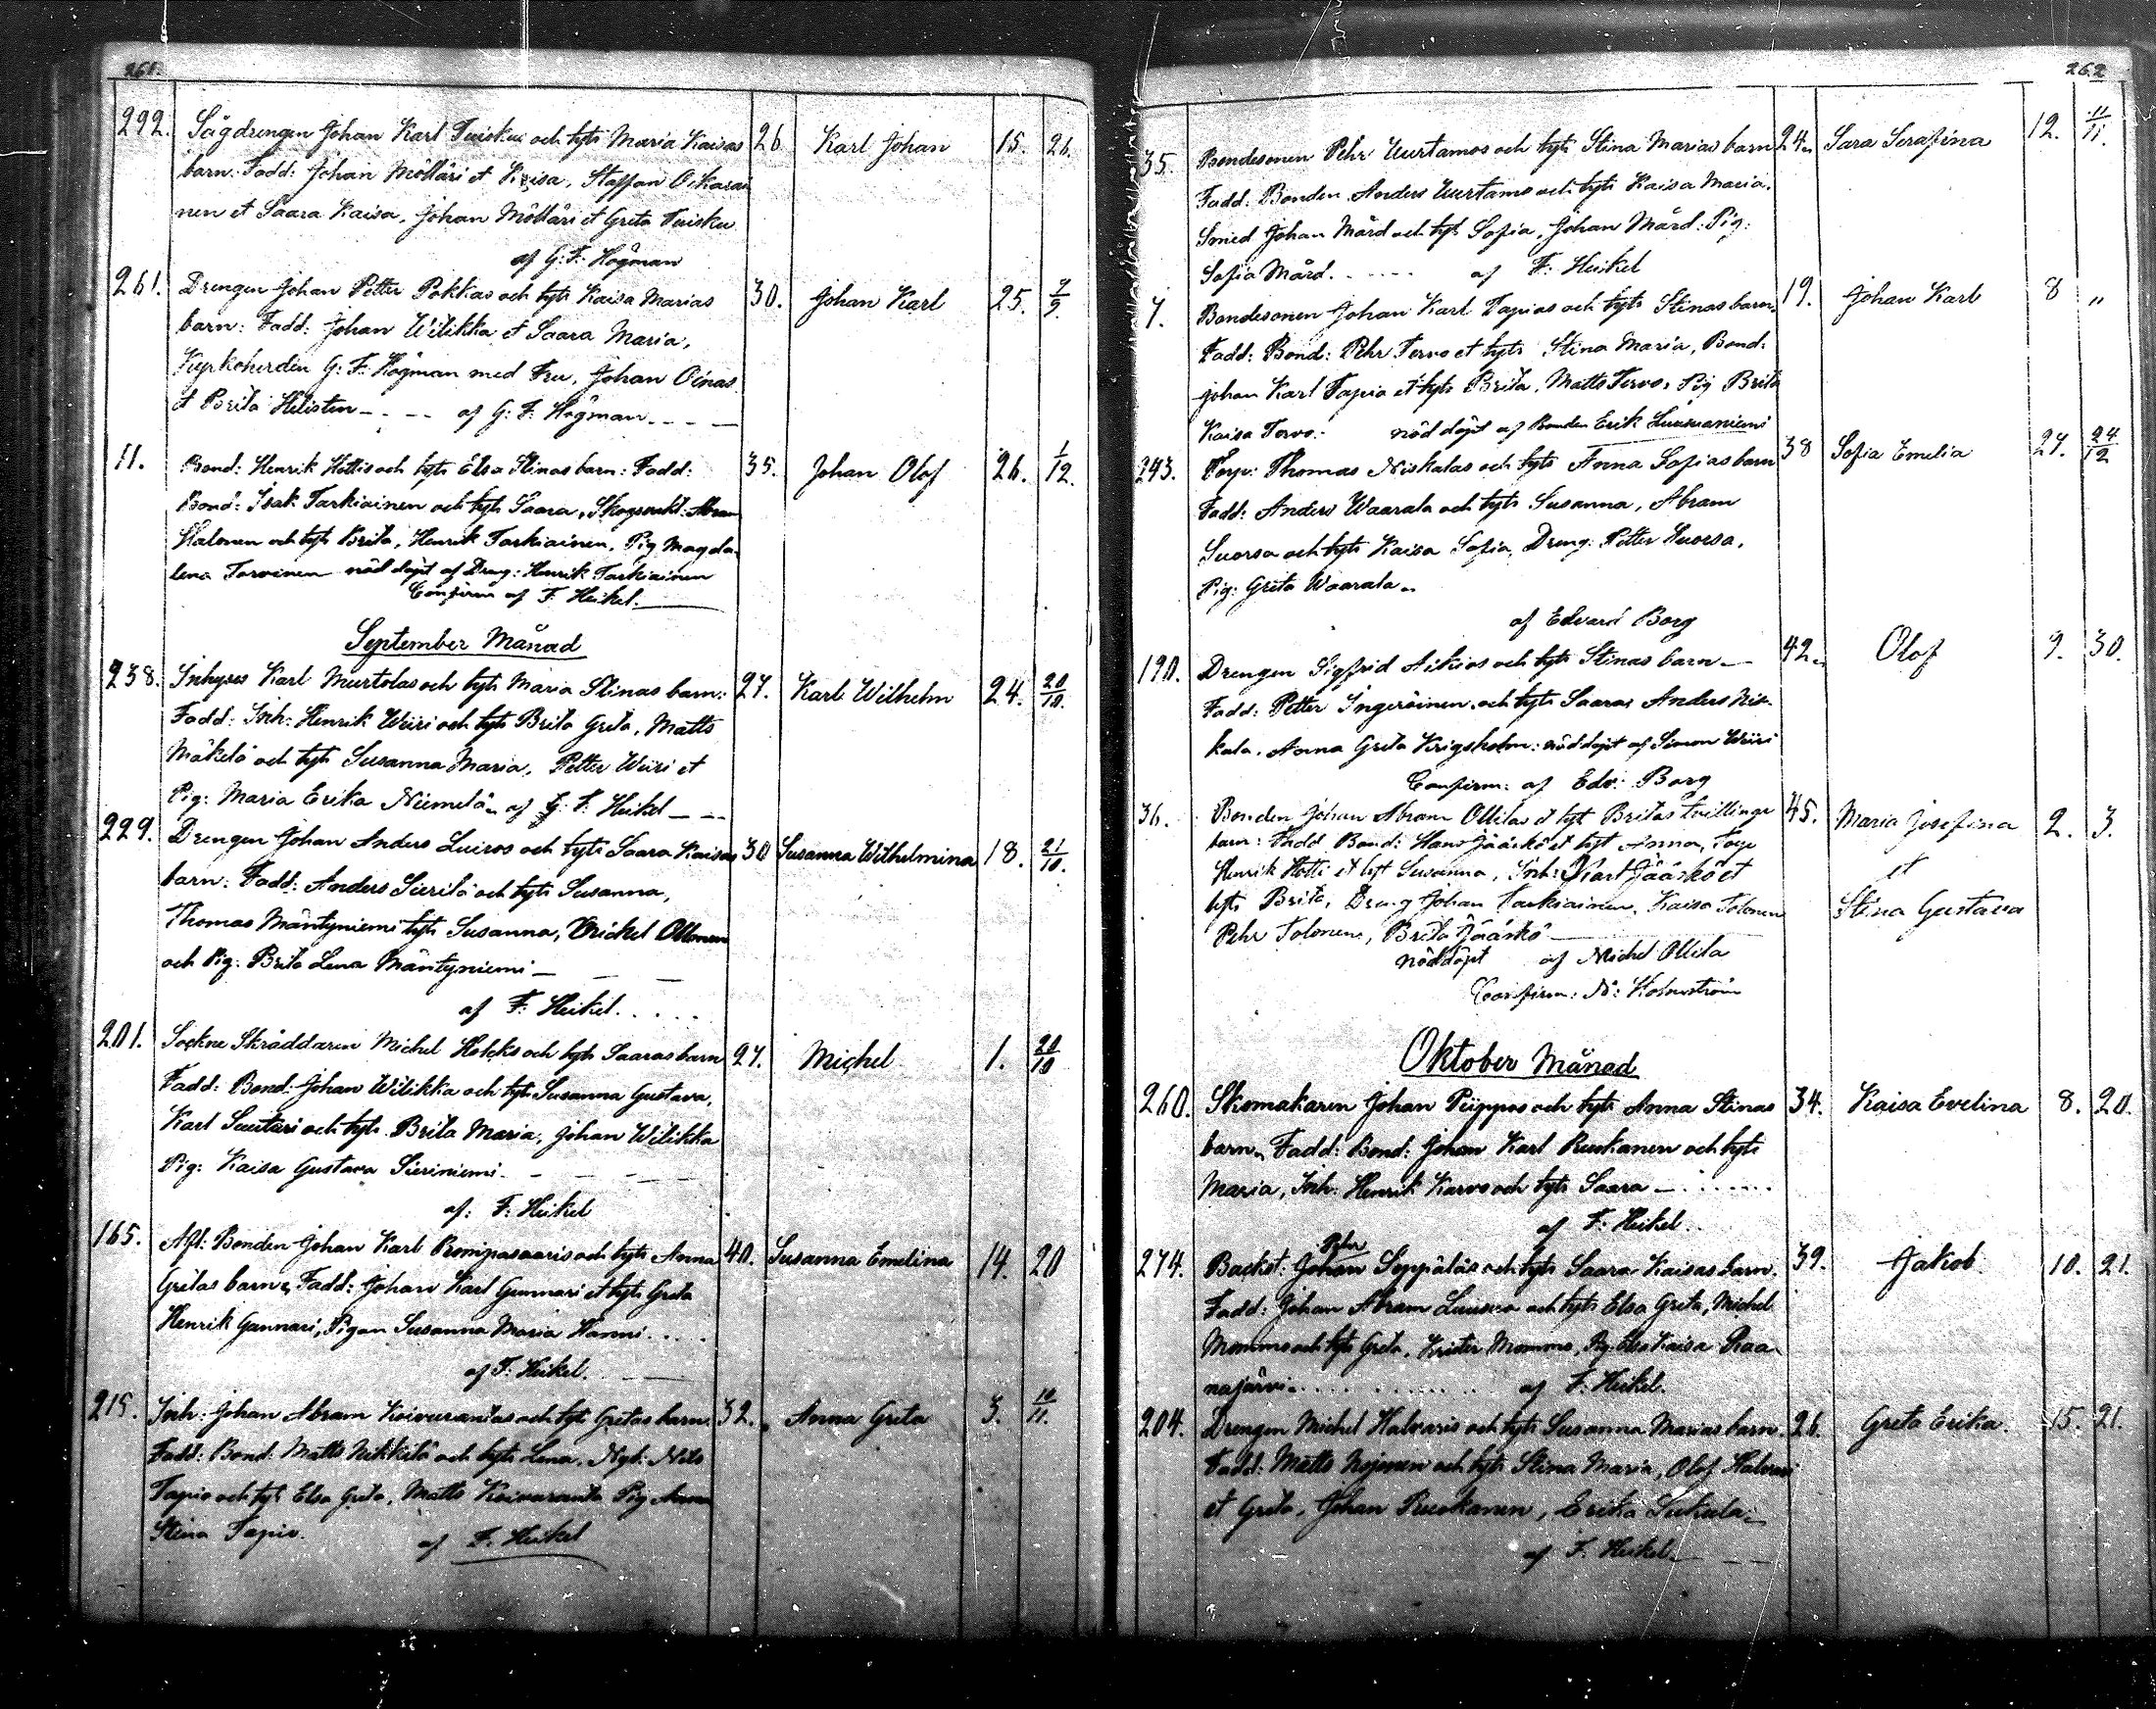 261.
292. Sågdrengen Johan Karl Tuiskus och hytr Maria Kaisas 26 Karl Johan 15. 26.
barn. Fadd: Johan Mölläri et Kaisa, Staffan Oikarai
nen et Saara Kaisa, Johan Möttäri et Greta Tuisku
af G: F: Högman
261. Drengen Johan Petter Pokkas och hytr Kaisa Marias 30. Johan Karl 25. 7/9.
barn: Fadd: Johan Wilikka et Saara Maria,
Kyrkoherden G: F: Högman med Fru, Johan Oinas
et Brita Helisten - - - af G: F: Högman - - -
11. Bond: Henrik Hottis och hytr Elsa Stinas barn: Fadd: 35. Johan Olof 26. 1/12.
Bond: Isak Tarkiainen och hytr Saara, Skogsvakt: Abram
Halonen och hytr Brita, Henrik Tarkiainen, Pig Magda-
lena Torvinen nöd döpt af Dreng: Henrik Tarkiainen
Confirm af F. Heikel.
September Månad
238. Inhyses Karl Murtolas och hytr Maria Stinas barn: 27. Karl Wilhelm 24. 20/10.
Fadd: Inh: Henrik Wiiri och hytr Brita Greta, Matts
Mäkelä och hytr Susanna Maria, Petter Wiiri et
Pig: Maria Erika Niemelä af G: F: Heikel - - -
229. Drengen Johan Anders Luiros och hytr Saara Kaisas 30 Susanna Wilhelmina 18. 21/10.
barn: Fadd: Anders Sierilä och hytr Susanna,
Thomas Mäntyniemi hytr Susanna, Michel Ollonen
och Pig: Brita Lena Mäntyniemi -
af F. Heikel.
201. Sockne Skräddaren Michel Holcks och hytr Saaras barn 27. Michel 1. 20/10
Fadd: Bond: Johan Wilikka och hytr Susanna Gustava,
Karl Suutari och hytr Brita Maria, Johan Wilikka
Pig: Kaisa Gustava Sieriniemi -
af: F: Heikel
165. Afl: Bonden Johan Karl Pompasaaris och hytr Anna 40. Susanna Emelina 14. 20
Gretas barn, Fadd: Johan Karl Gunnari et hytr Greta
Henrik Gunnari, Pigan Susanna Maria Hanni . . . .
af F: Heikel.
215. Inh: Johan Abram Koivurantas och hytr Gretas barn. 32. Anna Greta 3. 10/11.
Fadd: Bond: Matts Nikkilä och hytr Lena, Nyb: Nils
Tapio och hytr Elsa Greta, Matts Koivuranta Pig Anna
Stina Tapio. af F. Heikel
262
35. Bondesonen Pehr Uurtamos och hytr Stina Marias barn 24. Sara Serafina 12. 11/11.
Fadd: Bonden Anders Uurtamo och hytr Kaisa Maria,
Smed Johan Mård och hytr Sofia, Johan Mård: Pig:
Sofia Mård. . . . . . af F: Heikel
7. Bondesonen Johan Karl Tapios och hytr Stinas barn. 19. Johan Karl 8 "
Fadd: Bond: Pehr Tervo et hytr Stina Maria, Bond:
Johan Karl Tapio et hytr Brita, Matts Tervo, Pig Brita
Kaisa Tervo. nöd döpt af Bonden Erik Luusuaniemi
243. Torp: Thomas Niskalas och hytr Anna Sofias barn 38 Sofia Emelia 27. 24/12
Fadd: Anders Waarala och hytr Susanna, Abram
Suorsa och hytr Kaisa Sofia, Dreng: Petter Suorsa,
Pig: Greta Waarala.
af Edvard Borg
190. Drengen Sigfrid Aikios och hytr Stinas barn - 42. Olof 9. 30.
Fadd: Petter Ingeröinen och hytr Saara, Anders Nis-
kala, Anna Greta Krigsholm: nöddöpt af Simon Wiiri
Confirm: af Edv: Borg
36. Bonden Johan Abram Ollilas et hyt Britas tvillinge 45. Maria Josefina 2. 3.
barn: Fadd Bond: Hans Jääskö et hyt Anna, Torp
et
Henrik Hotti et hyt Susanna, Inh: Karl Jääskö et
hytr Brita, Dreng Johan Tarkiainen, Kaisa Tolonen Stina Gustava
Pehr Tolonen, Brita Jääskö
nöddöpt af Michel Ollila
Confirm: N: Holmström
Oktober Månad
260. Skomakaren Johan Piippos och hytr Anna Stinas 34. Kaisa Evelina 8. 20.
barn, Fadd: Bond: Johan Karl Ruokanen och hytr
Maria, Inh: Henrik Karvo och hytr Saara - . . . . .
af F: Heikel.
Pehr
274. Backst: Johan Seppäläs och hytr Saara Kaisas barn. 39. Jakob 10. 21.
Fadd: Johan Abram Luusua och hytr Elsa Greta, Michel
Mommo och hytr Greta, Krister Mommo, Pig. Elsa Kaisa Raa-
najärvi. . . . . . . . af F. Heikel.
204. Drengen Michel Halvaris och hytr Susanna Marias barn. 26. Greta Erika. 15. 21.
Fadd: Matts Nojonen och hytr Stina Maria, Olof Halvari
et Greta, Johan Ruokanen, Erika Sukula -
af F. Heikel